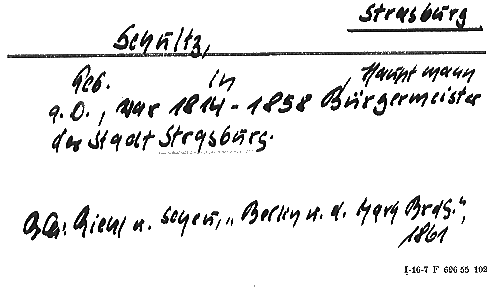 Strasburg
Schultz,
Geb. in , Hauptmann
a.D., war 1814-1858 Bürgermeister
der Stadt Strasburg.
Riehl u. Scheu, „Berlin u. d. Mark Brdg.",
1861
I-16-7 F 696 55 102